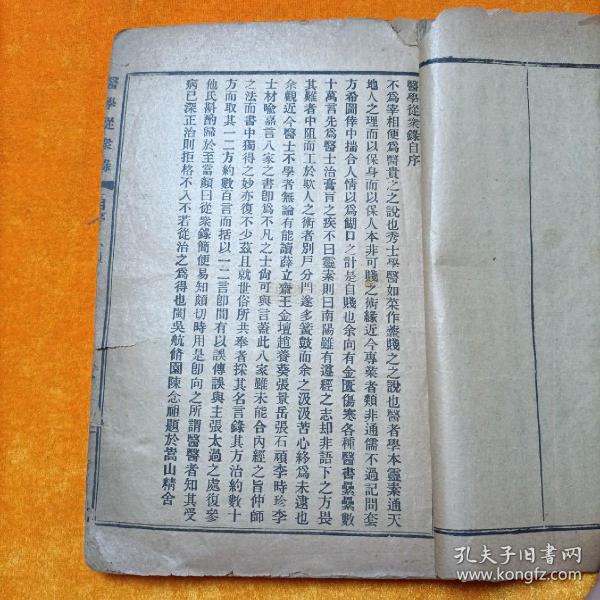 醫學從衆錄自序
不爲宰相便爲醫貴之之說也秀士學醫如菜作虀賤之之說也醫者學本靈素通天
地人之理而以保身而以保人本非可賤之術緣近今專業者類非通儒不過記問套
方希圖倖中揣合人情以爲餬口之計是自賤也余向有金匱傷寒各種醫書彙彙數
十萬言先爲醫士治膏肓之疾不曰靈素則曰南陽雖有遵經之志却非語下之方畏
其難者中阻而工於欺人之術者別戶分門遂多簧鼓而余之汲汲苦心終爲未逮也
余觀近今醫士不學者無論有能讀薛立齋王金壇趙養葵張景岳張石頑李時珍李
士材喩嘉言八家之書卽爲不凡之士尙可與言蓋此八家雖未能合內經之旨仲師
之法而書中獨得之妙亦復不少茲且就世俗所共奉者採其名言錄其方治約數十
方而取其一二方約數百言而括以一二言卽間有以誤傳誤與主張太過之處復參
他氏斟酌歸於至當顏曰從衆錄簡便易知頗切時用是卽向之所謂醫醫者知其受
病已深正治則拒格不入不若從治之爲得也閩吳航脩園陳念祖題於嵩山精舍
醫學從衆錄
自序
孔夫子旧书网
www.kongfz.com